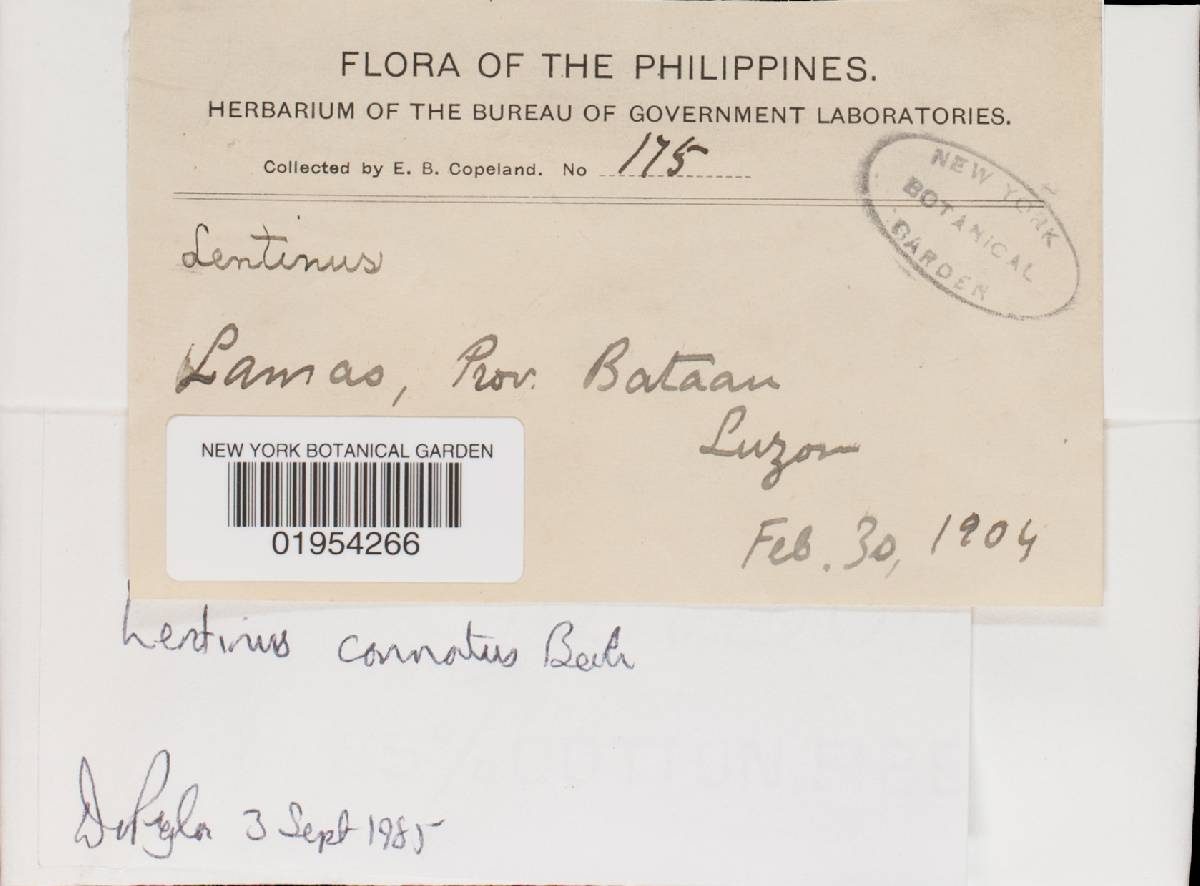 FLORA OF THE PHILIPPINES.
HERBARIUM OF THE BUREAU OF GOVERNMENT LABORATORIES.
Collected by E. B. Copeland. No 175
NEW YORK
BOTANICAL
GARDEN
Lentinus
Lamao, Prov. Bataan
Luzon
Feb. 30, 1904
NEW YORK BOTANICAL GARDEN
01954266
Lentinus connatus Berk
D Pegler 3 Sept 1985